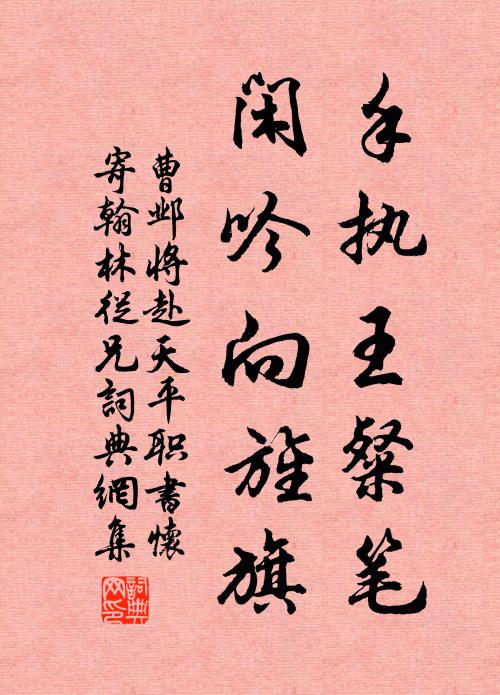 手执王粲笔
闲吟向旌旗
曹邺将赴天平职书怀
寄翰林從兄詞典網集
詞典网印